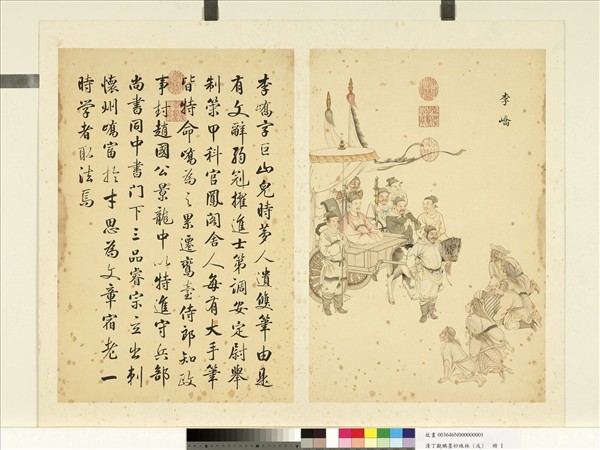 李嶠
李嶠字巨山兒時夢人遺雙筆由是
有文辭弱冠擢進士第調安定尉舉
制策甲科官鳳閣舍人每有大手筆
皆特命嶠為之累遷鸞臺侍郎知政
事封趙國公景龍中以特進守兵部
尚書同中書門下三品睿宗立出刺
懷州嶠富於才思為文章宿老一
時学者取法焉
故畫 003646N000000001
清丁觀鵬墨妙珠林（戌） 冊 1